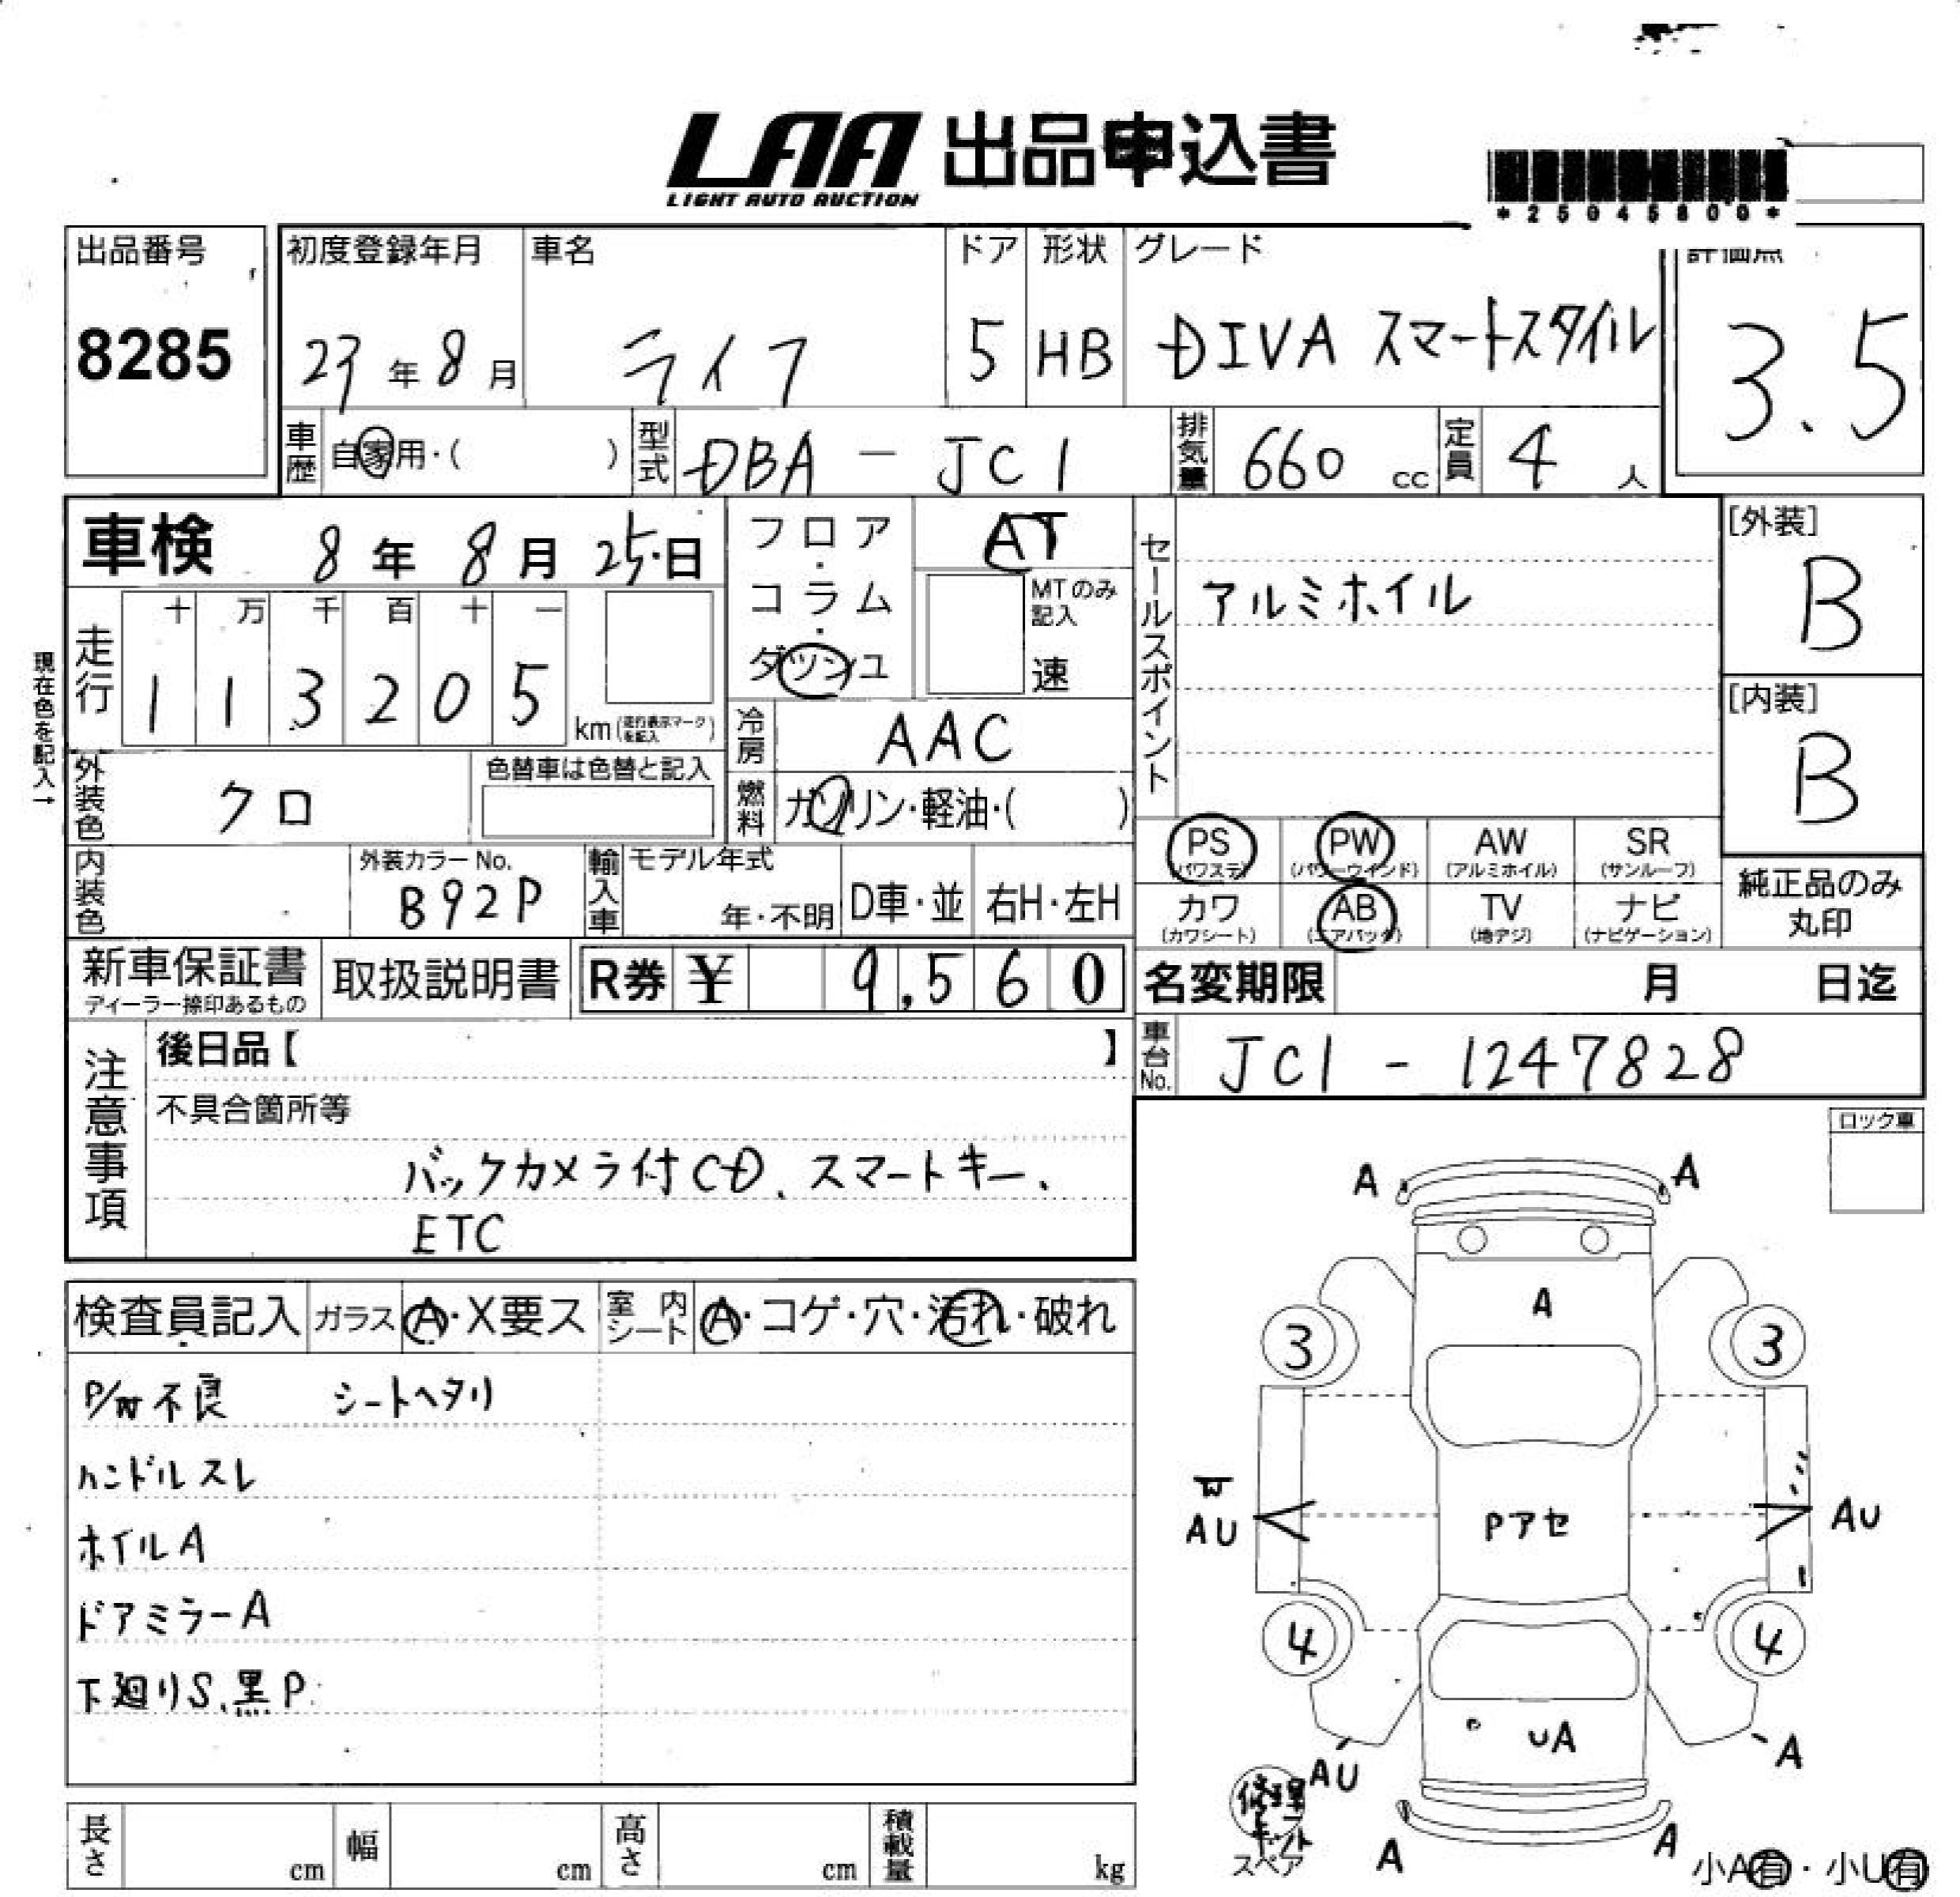 LAA 出品申込書
LIGHT AUTO AUCTION
*25045800*
出品番号
8285
初度登録年月 車名 ドア 形状 グレード 評価点
23年8月 ライフ 5 HB DIVA スマートスタイル 3.5
車歴 自家用・( ) 型式 DBA - JC1 排気量 660 cc 定員 4 人
車検 8年8月25日
フロア・コラム・ダッシュ
AT
MTのみ記入
速
セールスポイント
アルミホイル
[外装]
B
[内装]
B
現在色を記入→
走行 十 万 千 百 十 一
1 1 3 2 0 5 km (走行表示マークを記入)
冷房 AAC
外装色 クロ 色替車は色替と記入
燃料 ガソリン・軽油・( )
PS (パワステ) PW (パワーウインド) AW (アルミホイル) SR (サンルーフ)
カワ (カワシート) AB (エアバッグ) TV (地デジ) ナビ (ナビゲーション)
純正品のみ
丸印
内装色 外装カラーNo. B92P 輸入車 モデル年式 年・不明 D車・並 右H・左H
新車保証書 取扱説明書 R券 ¥ 9,560 名変期限 月 日迄
ディーラー捺印あるもの
車台No. JC1 - 1247828
注意事項
後日品【 】
不具合箇所等
バックカメラ付CD、スマートキー、
ETC
ロック車
検査員記入 ガラス A・X要ス 室内シート A・コゲ・穴・汚れ・破れ
P/W不良 シートヘタリ
ハンドルスレ
ホイルA
ドアミラーA
下廻りS、黒P
A A
A
3 3
W
AU Pアセ AU
4 4
UA
AU A
修理キット
スペア
A A
小A有・小U有
長さ cm 幅 cm 高さ cm 積載量 kg